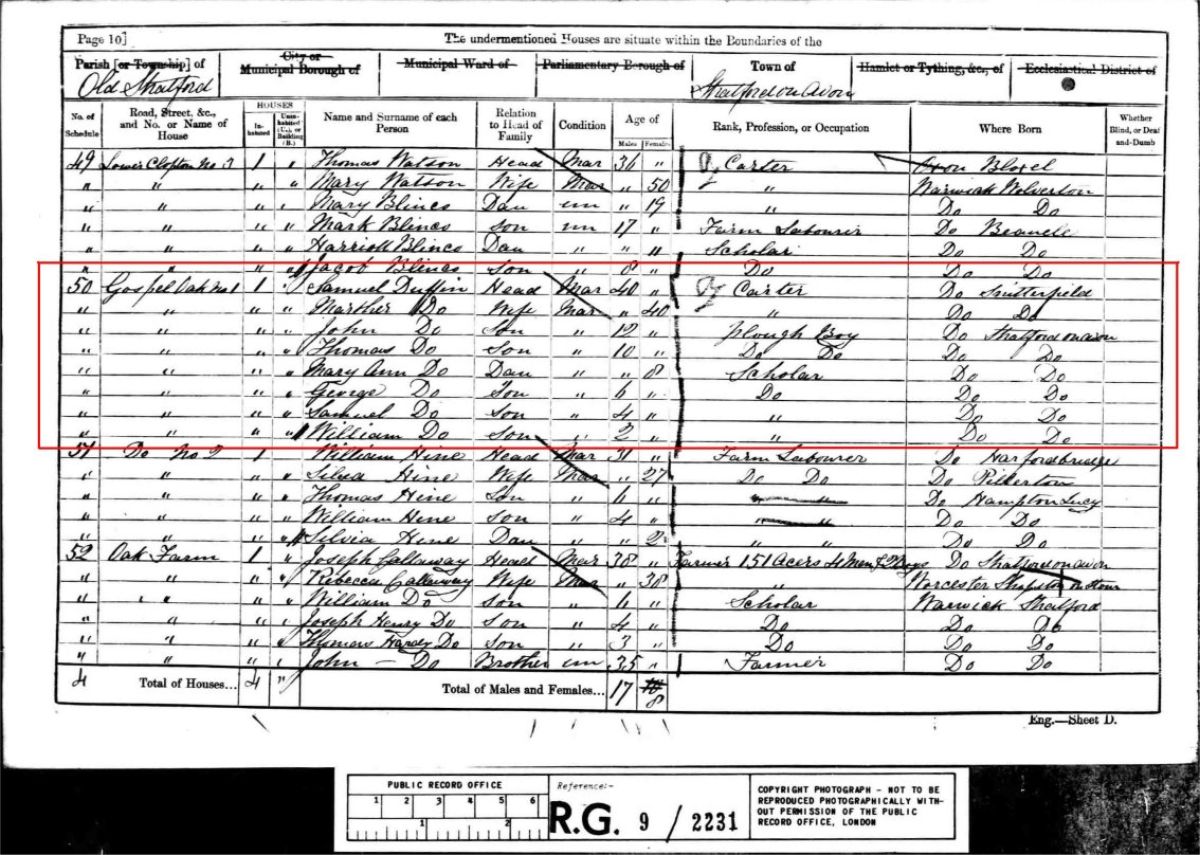 Page 10]
The undermentioned Houses are situate within the Boundaries of the
Parish [or Township] of
City or Municipal Borough of
Municipal Ward of
Parliamentary Borough of
Town of
Hamlet or Tything, &c., of
Ecclesiastical District of
Old Stratford
Stratford on Avon
No. of Schedule
Road, Street, &c., and No. or Name of House
HOUSES
Inhabited
Uninhabited (U.), or Building (B.)
Name and Surname of each Person
Relation to Head of Family
Condition
Age of
Males
Females
Rank, Profession, or Occupation
Where Born
Whether Blind, or Deaf and-Dumb
49 Lower Clopton No 3 1 " Thomas Watson Head Mar 36 " Carter Oxon
" " " " Mary Watson Wife Mar " 50 " Warwick Wolverton
" " " " Mary Blines Dau un " 19 " Do Do
" " " " Mark Blines Son un 17 " Farm Labourer Do
" " " " Harriott Blines Dau " " 11 Scholar Do Do
" " " " Jacob Blines Son " 8 " Do Do Do
50 Gospel Oak No 1 1 " Samuel Duffin Head Mar 40 " Carter Do Snitterfield
" " " " Marther Do Wife Mar " 40 " Do Do
" " " " John Do Son " 12 " Plough Boy Do Stratford on avon
" " " " Thomas Do Son " 10 " Do Do Do Do
" " " " Mary Ann Do Dau " " 8 Scholar Do Do
" " " " George Do Son " 6 " Do Do Do
" " " " Samuel Do Son " 4 " " Do Do
" " " " William Do Son " 2 " " Do Do
51 Do No 2 1 William Hine Head Mar 31 " Farm Labourer Do Harfordbridge
" " " " Hine Wife Mar " 27 Do Do Do Pillerton
" " " " Thomas Hine Son " 6 " " " Do Hampton Lucy
" " " " William Hine Son " 4 " " " Do Do
" " " " Silvia Hine Dau " " 2 " " Do Do
52 Oak Farm 1 " Joseph Callaway Head Mar 38 " Farmer 151 Acers 4 Men & 2 Boys Do Stratford on avon
" " " " Rebecca Callaway Wife Mar " 38 " Worcester Shipston on Stour
" " " " William Do Son " 6 " Scholar Warwick Stratford
" " " " Joseph Henry Do Son " 4 " Do Do Do
" " " " Thomas Hardy Do Son " 3 " Do Do Do
" " " " John — Do Brother un 35 " Farmer Do Do
4 Total of Houses... 4 " Total of Males and Females... 17 8
Eng.—Sheet D.
PUBLIC RECORD OFFICE
1 2 3 4 5 6
1 2
Reference:-
R.G. 9 / 2231
COPYRIGHT PHOTOGRAPH - NOT TO BE
REPRODUCED PHOTOGRAPHICALLY WITH-
OUT PERMISSION OF THE PUBLIC
RECORD OFFICE, LONDON